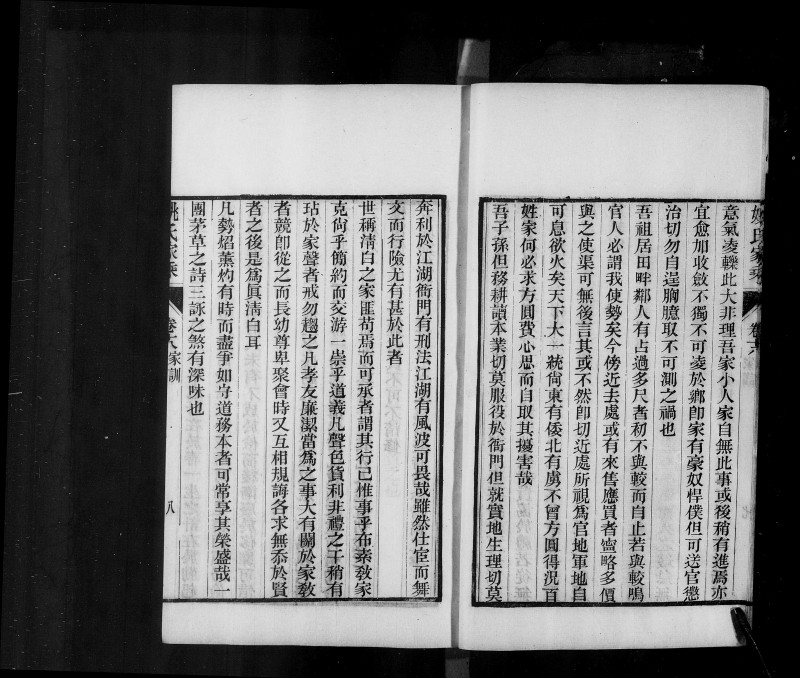 姚氏家乘
卷六
意氣凌轢此大非理吾家小人家自無此事或後稍有進焉亦
宜愈加收斂不獨不可凌於鄉卽家有豪奴悍僕但可送官懲
治切勿自逞胸臆取不可測之禍也
吾祖居田畔鄰人有占過多尺者初不與較而自止若與較鳴
官人必謂我使勢矣今傍近去處或有來售應買者寧略多價
與之使渠可無後言其或不然卽切近處所視爲官地軍地自
可息欲火矣天下大一統尙東有倭北有虜不曾方圓得況百
姓家何必求方圓費心思而自取其擾害哉
吾子孫但務耕讀本業切莫服役於衙門但就實地生理切莫
奔利於江湖衙門有刑法江湖有風波可畏哉雖然仕宦而舞
文而行險尤有甚於此者
世稱淸白之家匪苟焉而可承者謂其行已惟事乎布素敎家
克尙乎簡約而交游一崇乎道義凡聲色貨利非禮之干稍有
玷於家聲者戒勿趨之凡孝友廉潔當爲之事大有關於家敎
者競卽從之而長幼尊卑聚會時又互相規誨各求無忝於賢
者之後是爲眞淸白耳
凡勢焰薰灼有時而盡爭如守道務本者可常享其榮盛哉一
團茅草之詩三詠之煞有深味也
姚氏家乘
卷八家訓
八